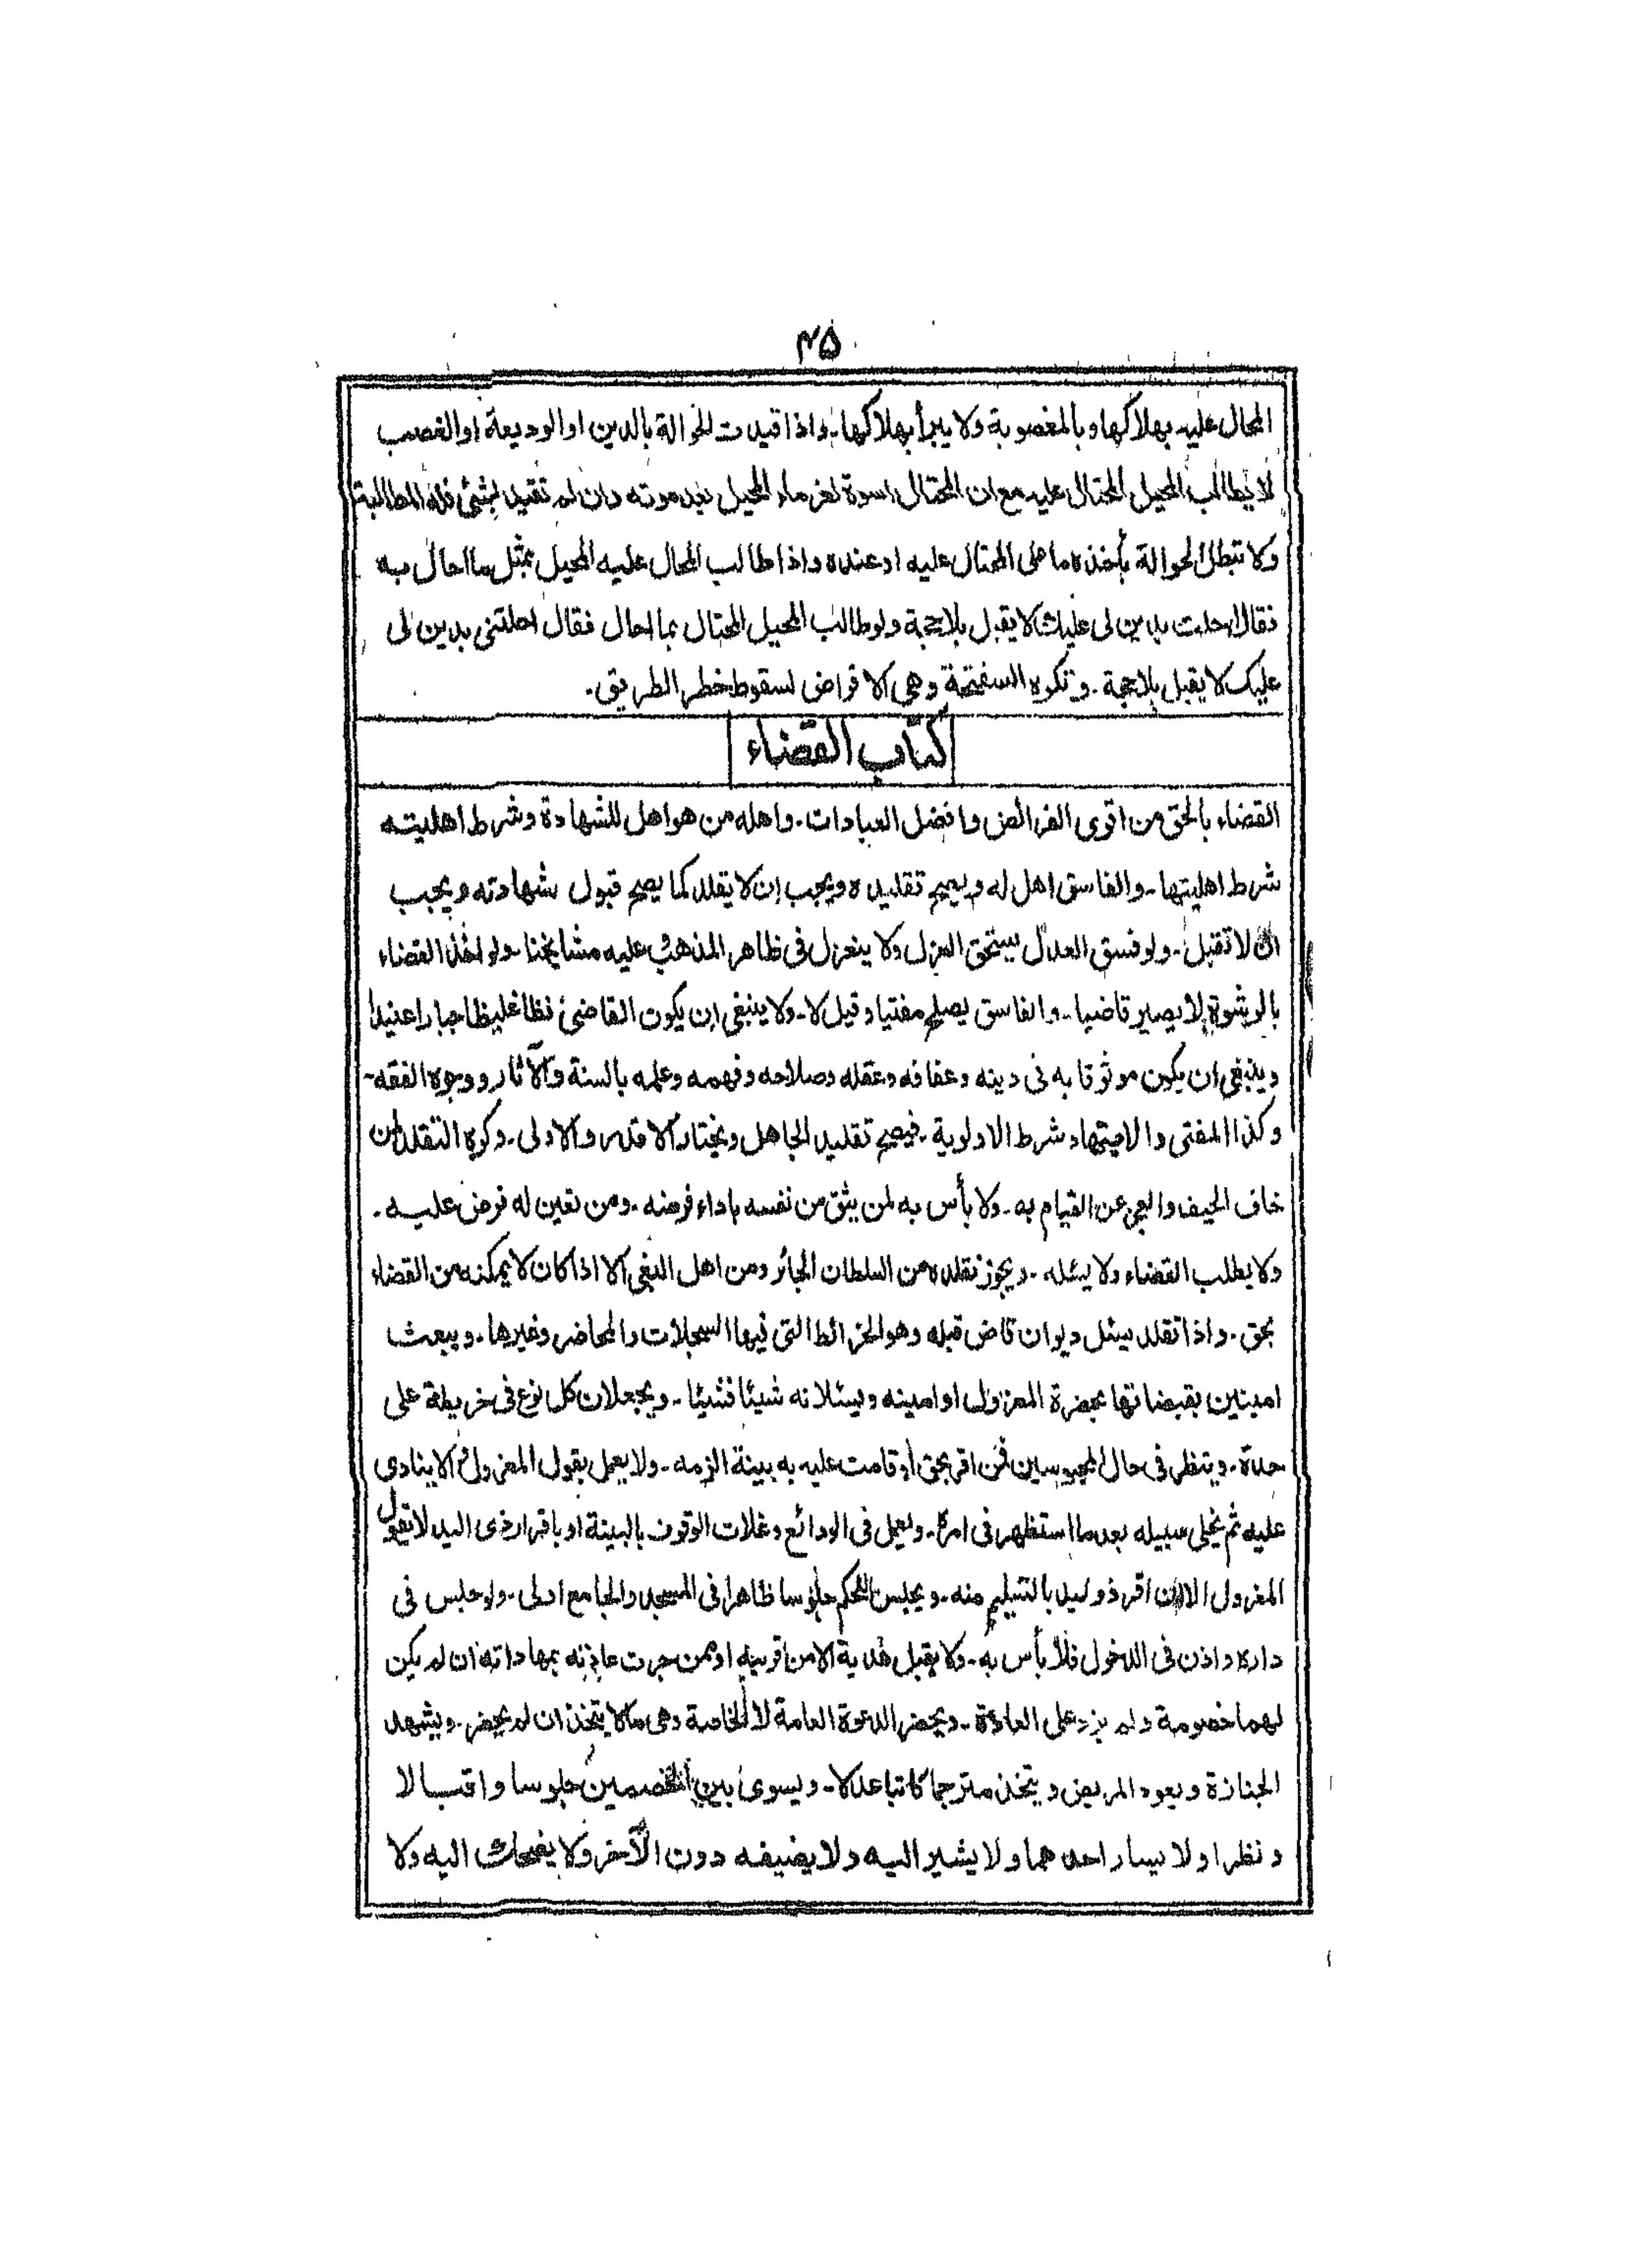 ۳۵
المحال عليه بهلاكها وبالمغصوبة ولا يبرأ بهلاكها۔ واذا قيدت الحوالة بالدين او الوديعة او الغصب
لا يطالب المحيل المحتال عليه مع ان المحتال اسوة لغرماء المحيل بعد موته وان لم تقيد بشئ فله المطالبة
ولا تبطل الحوالة بأخذه ما على المحتال عليه او عنده واذا طالب المحال عليه المحيل بمثل ما احال به
فقال احلت بدين لى عليك لا يقبل بلا حجة ولو طالب المحيل المحتال بما احال فقال احلتنى بدين لى
عليك لا يقبل بلا حجة۔ وتكره السفتجة وهى الاقراض لسقوط خطر الطريق۔
كتاب القضاء
القضاء بالحق من اقوى الفرائض وافضل العبادات۔ واهله من هو اهل للشهادة وشرط اهليته
شرط اهليتها۔ والفاسق اهل له ويصح تقليده ويجب ان لا يقلد كما يصح قبول شهادته ويجب
ان لا تقبل۔ ولو فسق العدل يستحق العزل ولا ينعزل فى ظاهر المذهب وعليه مشايخنا۔ ولو اخذ القضاء
بالرشوة لا يصير قاضيا۔ والفاسق يصلح مفتيا وقيل لا۔ ولا ينبغى ان يكون القاضى فظا غليظا جبارا عنيدا
وينبغى ان يكون موثوقا به فى دينه وعفافه وعقله وصلاحه وفهمه وعلمه بالسنة والآثار ووجوه الفقه۔
وكذا المفتى والاجتهاد شرط الاولوية۔ فيصح تقليد الجاهل ويختار الاقدر والاولى۔ وكره التقلد لمن
خاف الحيف والعجز عن القيام به۔ ولا بأس به لمن يثق من نفسه باداء فرضه۔ ومن تعين له فرض عليه۔
ولا يطلب القضاء ولا يسئله۔ ويجوز تقلده من السلطان الجائر ومن اهل البغى الا اذا كان لا يمكنه من القضاء
بحق۔ واذا تقلد يسئل ديوان قاض قبله وهو الخرائط التى فيها السجلات والمحاضر وغيرها۔ ويبعث
امينين يقبضانها بحضرة المعزول او امينه ويسئلانه شيئا فشيئا۔ ويجعلان كل نوع فى خريطة على
حدة۔ وينظر فى حال المحبوسين فمن اقر بحق أو قامت عليه به بينة الزمه۔ ولا يعمل بقول المعزول والا ينادى
عليه ثم يخلى سبيله بعد ما استظهر فى امره۔ ويعمل فى الودائع وغلات الوقوف بالبينة او باقرار ذى اليد لا بقول
المعزول الا ان اقر ذو اليد بالتسليم منه۔ ويجلس للحكم جلوسا ظاهرا فى المسجد والجامع اولى۔ ولو جلس فى
داره واذن فى الدخول فلا بأس به۔ ولا يقبل هدية الا من قريبه او ممن جرت عادته بمهاداته ان لم يكن
لهما خصومة ولم يزد على العادة۔ ويحضر الدعوة العامة لا الخاصة وهى ما لا يتخذ ان لم يحضر۔ ويشهد
الجنازة ويعود المريض ويتخذ مترجما كاتبا عدلا۔ ويسوى بين الخصمين جلوسا واقبالا
ونظرا ولا يسار احدهما ولا يشير اليه ولا يضيفه دون الآخر ولا يضحك اليه ولا